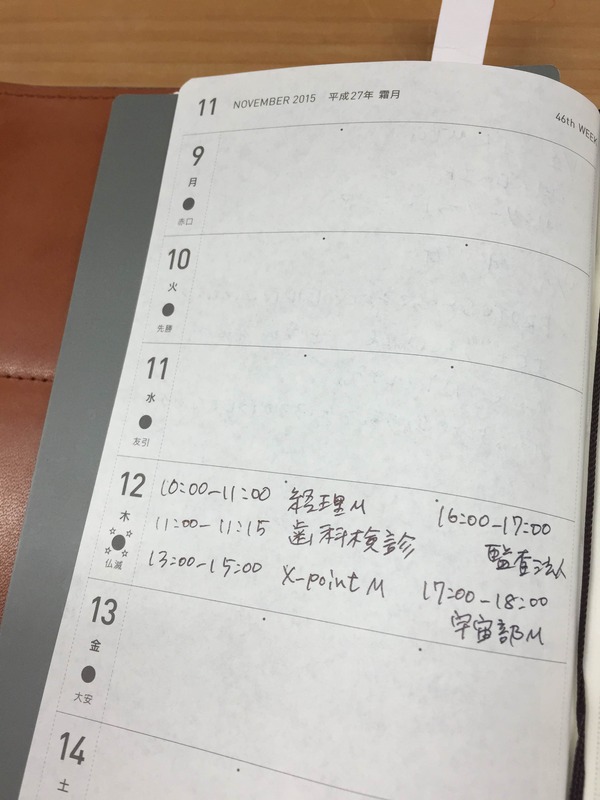 11 NOVEMBER 2015 平成27年 霜月
46th WEEK
9
月
赤口
10
火
先勝
11
水
友引
12
木
仏滅
10:00-11:00 経理M
11:00-11:15 歯科検診
13:00-15:00 X-point M
16:00-17:00
監査法人
17:00-18:00
宇宙部M
13
金
大安
14
土